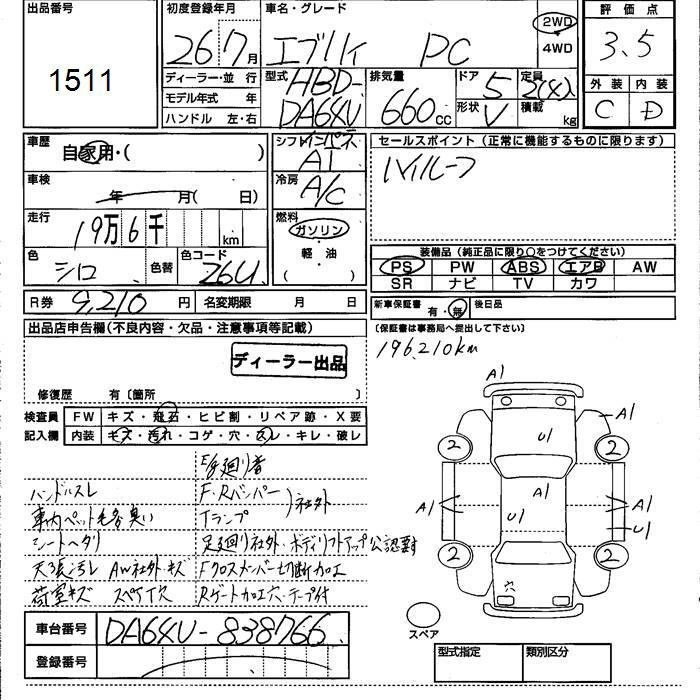 出品番号 初度登録年月 車名・グレード 2WD 評価点
1511 26 7月 エブリィ PC 4WD 3.5
ディーラー・並行 型式 HBD-DA64V 排気量 660cc ドア 5 定員 2(4)人
モデル年式 年 形状 V 積載 kg 外装 内装
ハンドル 左・右 C D
車歴 自家用・( ) シフト インパネ AT セールスポイント(正常に機能するものに限ります)
車検 年 月( 日) 冷房 A/C ハイルーフ
走行 19万6千 km 燃料 ガソリン
軽油
色 シロ 色替 色コード 26U 装備品(純正品に限り○をつけてください)
PS PW ABS エアB AW
SR ナビ TV カワ
R券 9,210円 名変期限 月 日 新車保証書 有・無 後日品
出品店申告欄(不良内容・欠品・注意事項等記載) (保証書は事務局へ提出して下さい)
196,210km
ディーラー出品
修復歴 有〔箇所 〕
検査員 FW キズ・飛石・ヒビ割・リペア跡・X要
記入欄 内装 キズ・汚れ・コゲ・穴・スレ・キレ・破レ
A1
A1
U1
2 2
A1
A1 A1
U1 U1
2 2
穴
スペア
ハンドルスレ F・Rバンパー 社外
車内ペット毛多臭い Tランプ
シートヘタリ 足廻り社外・ボディリフトアップ公認要す
天張汚レ AW社外・キズ Fクロスメンバー切断加工
荷室キズ スペア穴 Rゲート加工穴・テープ付
車台番号 DA64V-838766
登録番号 型式指定 類別区分